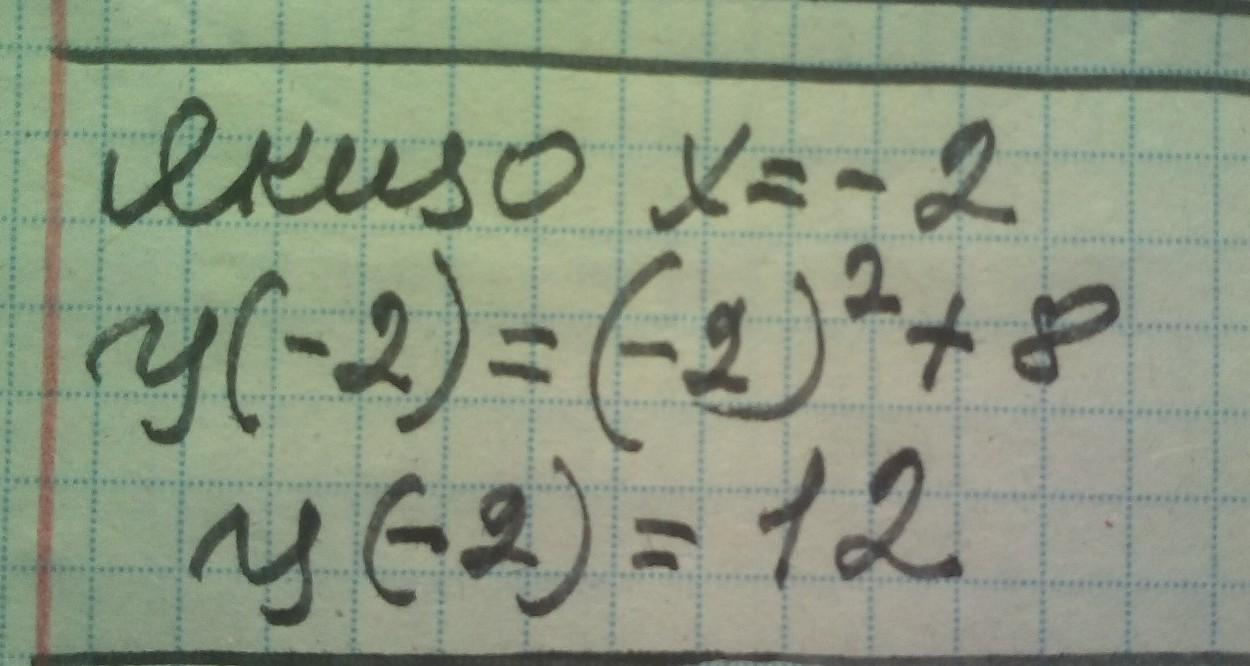 Якщо x = - 2
y(-2) = (-2)² + 8
y(-2) = 12